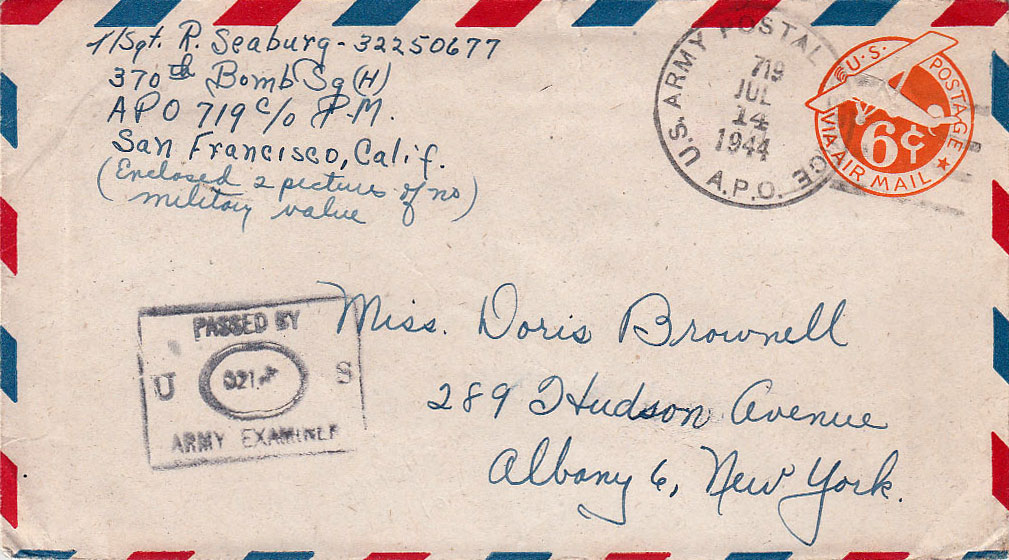 T/Sgt. R. Seaburg - 32250677
370th Bomb Sq (H)
APO 719 c/o P.M.
San Francisco, Calif.
(Enclosed 2 pictures of no
military value)
U.S. ARMY POSTAL
A.P.O.
719
JUL
14
1944
U.S. POSTAGE
6¢
VIA AIR MAIL
PASSED BY
U S
ARMY EXAMINER
Miss. Doris Brownell
289 Hudson Avenue
Albany 6, New York.